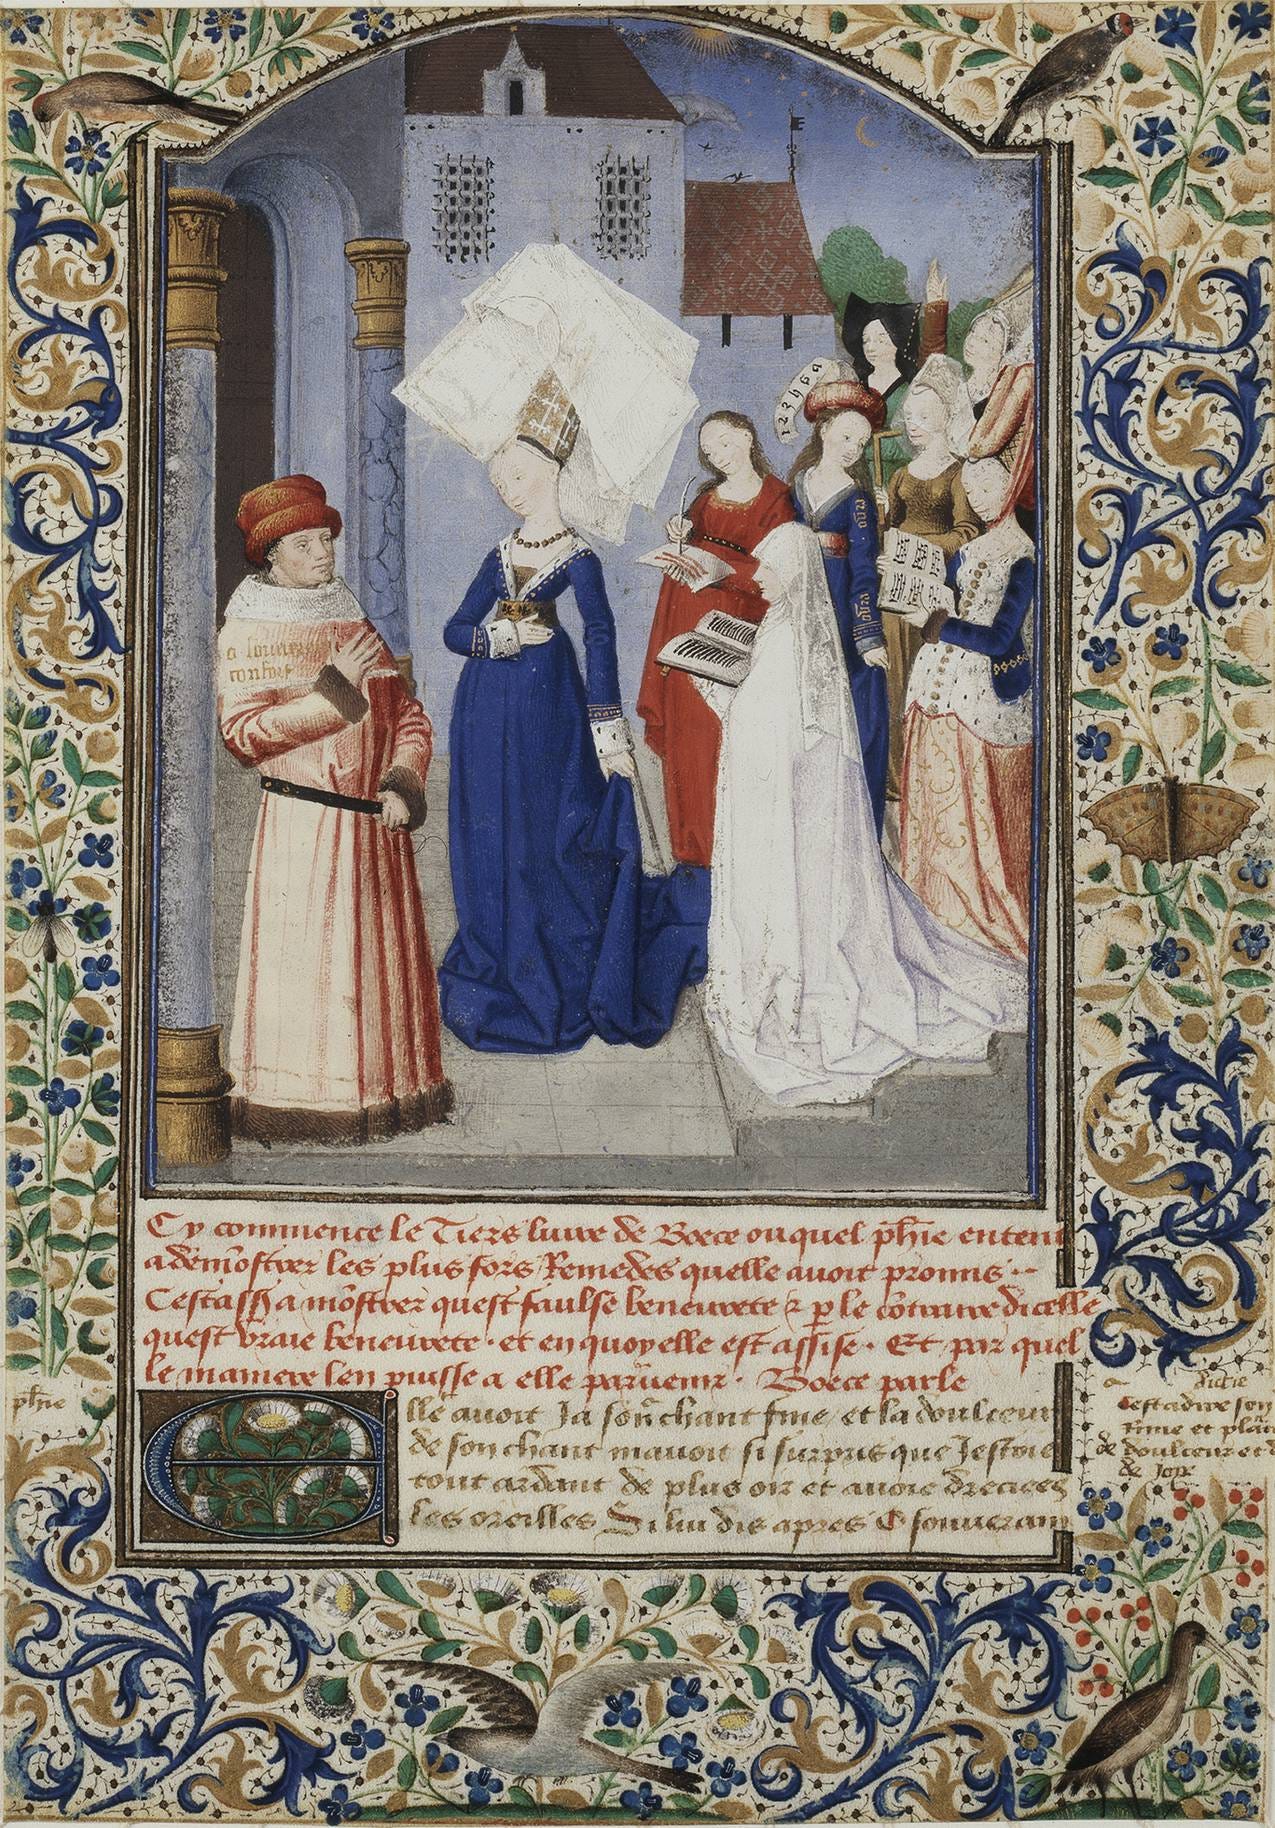 a souuerain
confort
Cy commence le Tiers liure de Boece ouquel phīe entent
a demōstrer les plus fors Remedes quelle auoit promis··
Cestassa mōstrer quest faulse beneurete & p le cōtraire dicelle
quest vraie beneurete · et en quoy elle est assise · Et par quel
le maniere len puisse a elle paruenir · Boece parle
Elle auoit Ja son chant fine / et la doulceur
de son chant mauoit si surpris que Jestoie
tout ardant de plus oir et auoie dreciees
les oreilles Si lui dis apres O souuerain
phīe
a dicte
Cestadire son
Rime et plain
de doulceur et d
de Joye